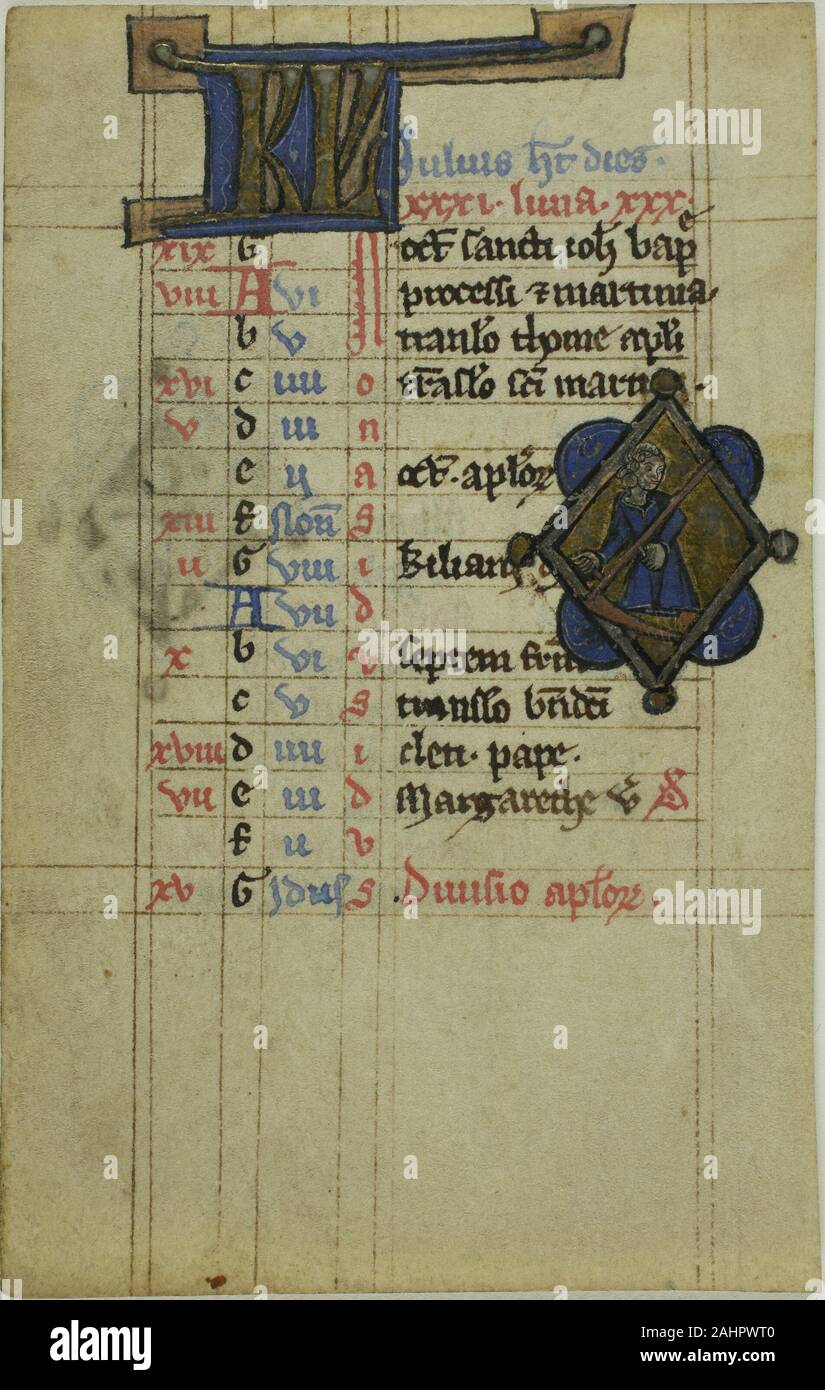 KL
Iulius ht dies.
xxxi. luna. xxx.
xix G oct sancti ioh bapt
viii A vi processi ⁊ martinia
b v transl'o thome apl'i
xvi c iiii o trasl'o sci martin .
v d iii n
e ij a oct. apl'or
xiii f Non S
ii G viii i Kilian
A vii d
x b vi v Septem frm
c v s transl'o bndci
xviii d iiii i cleti. pape.
vii e iii d Margarethe v S
f ii v
xv G Jdus s .Diuisio apl'or.
alamy
Image ID: 2AHPWT0
www.alamy.com